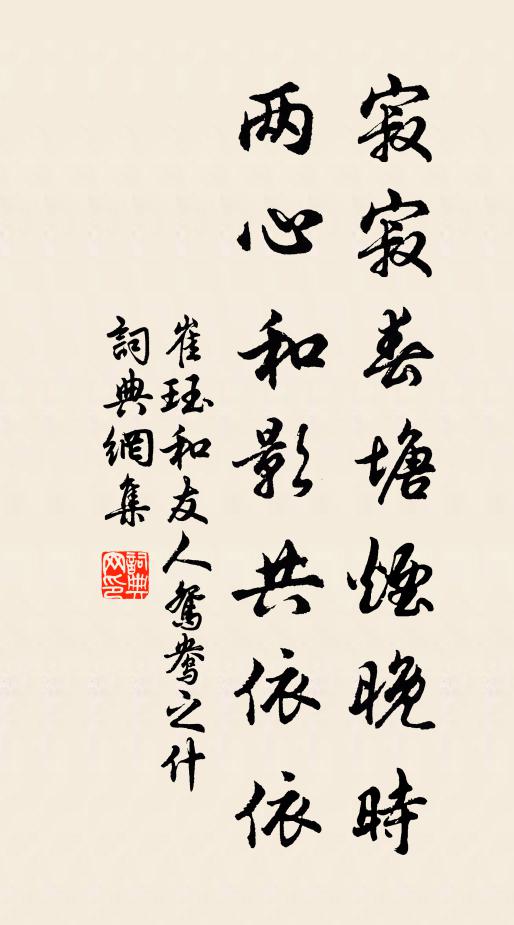 寂寂春塘煙晚時
两心和影共依依
崔珏和友人鴛鴦之什
詞典網集
詞典网印